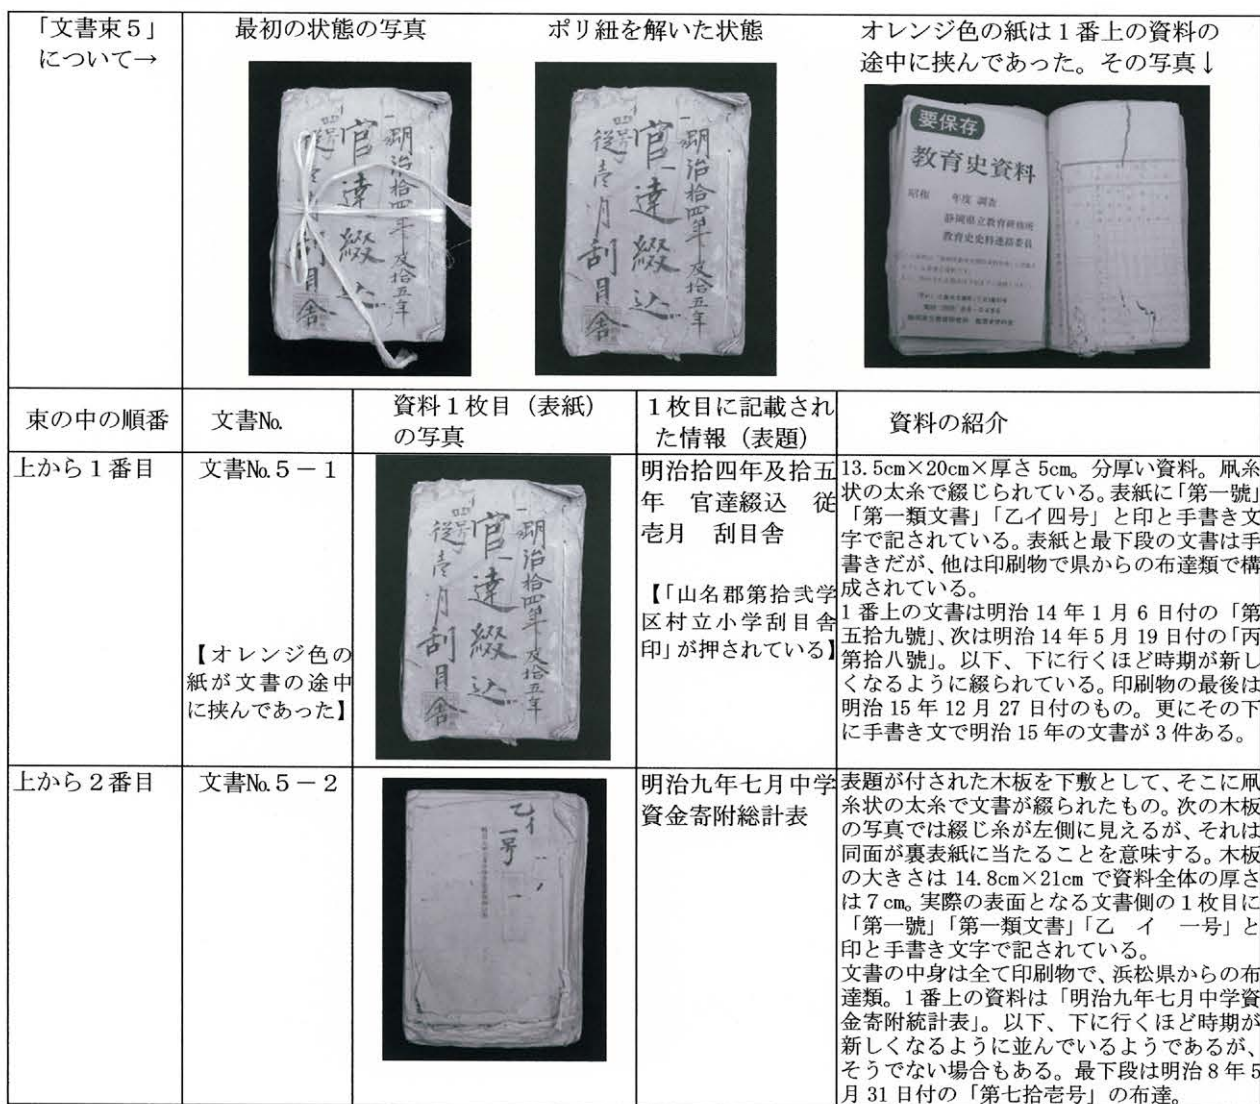 「文書束５」
について→
最初の状態の写真
ポリ紐を解いた状態
オレンジ色の紙は１番上の資料の
途中に挟んであった。その写真↓
明治拾四年及拾五年
官達綴込
従壱月刮目舎
明治拾四年及拾五年
官達綴込
従壱月刮目舎
要保存
教育史資料
昭和　年度 調査
静岡県立教育研修所
教育史史料連絡委員
束の中の順番
文書№
資料１枚目（表紙）
の写真
１枚目に記載され
た情報（表題）
資料の紹介
上から１番目
文書№５－１
【オレンジ色の
紙が文書の途中
に挟んであった】
明治拾四年及拾五年
官達綴込
従壱月刮目舎
明治拾四年及拾五
年　官達綴込　従
壱月　刮目舎
【「山名郡第拾弐学
区村立小学刮目舎
印」が押されている】
13.5cm×20cm×厚さ5cm。分厚い資料。凧糸
状の太糸で綴じられている。表紙に「第一號」
「第一類文書」「乙イ四号」と印と手書き文
字で記されている。表紙と最下段の文書は手
書きだが、他は印刷物で県からの布達類で構
成されている。
１番上の文書は明治14年1月6日付の「第
五拾九號」、次は明治14年5月19日付の「丙
第拾八號」。以下、下に行くほど時期が新し
くなるように綴られている。印刷物の最後は
明治15年12月27日付のもの。更にその下
に手書き文で明治15年の文書が3件ある。
上から２番目
文書№５－２
乙イ
一号
明治九年七月中学
資金寄附総計表
表題が付された木板を下敷として、そこに凧
糸状の太糸で文書が綴られたもの。次の木板
の写真では綴じ糸が左側に見えるが、それは
同面が裏表紙に当たることを意味する。木板
の大きさは14.8cm×21cmで資料全体の厚さ
は７cm。実際の表面となる文書側の１枚目に
「第一號」「第一類文書」「乙　イ　一号」と
印と手書き文字で記されている。
文書の中身は全て印刷物で、浜松県からの布
達類。１番上の資料は「明治九年七月中学資
金寄附統計表」。以下、下に行くほど時期が
新しくなるように並んでいるようであるが、
そうでない場合もある。最下段は明治8年5
月31日付の「第七拾壱号」の布達。